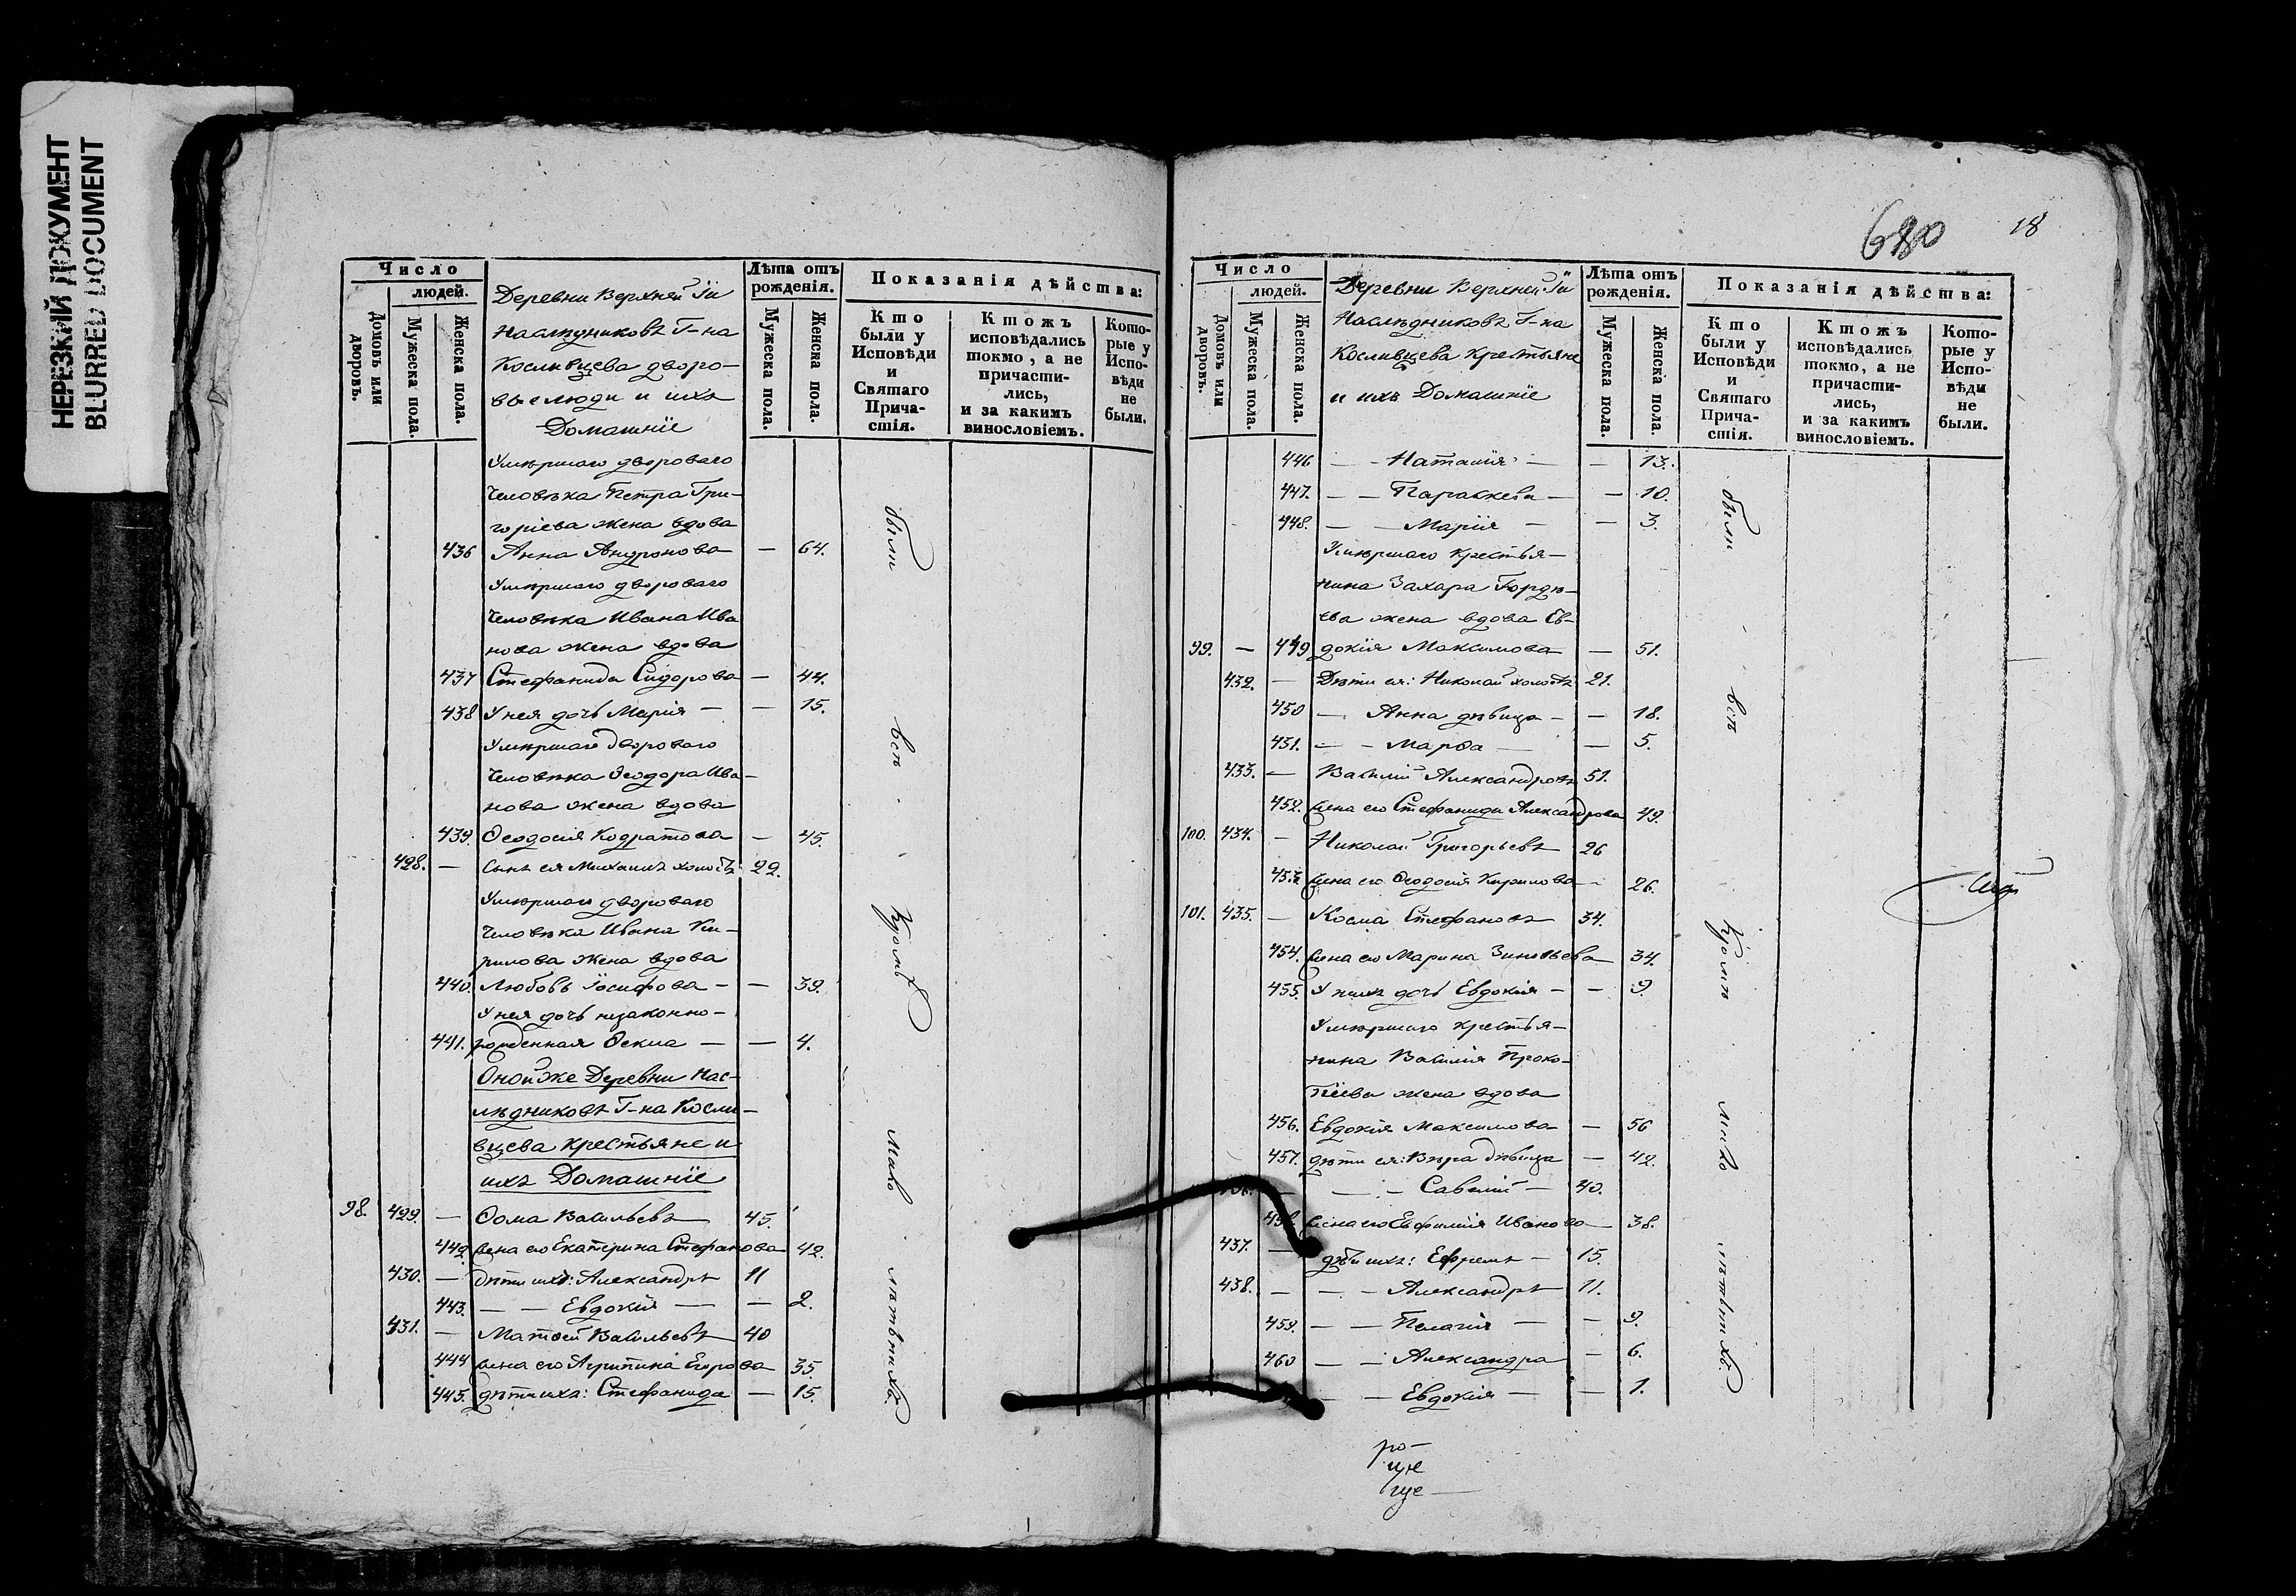 НЕРЕЗКИЙ ДОКУМЕНТ
BLURRED DOCUMENT
Число
людей.
Домовъ или дворовъ.
Мужеска пола.
Женска пола.
Деревни Верхней
Наслѣдниковъ Г-на
Косливцева дворо-
вые люди и ихъ
Домашніе
Лѣта отъ рожденія.
Мужеска пола.
Женска пола.
Показанія дѣйства:
Кто были у Исповѣди и Святаго Прича-стія.
Ктожъ исповѣдались токмо, а не причасти-лись, и за какимъ винословіемъ.
Кото-рые у Испо-вѣди не были.
Умершаго двороваго
человѣка Петра Гри-
горіева жена вдова
436 Анна Андронова — 64.
Умершаго двороваго
человѣка Ивана Ива
нова жена вдова
437 Стефанида Сидорова — 44.
438 У нея дочь Марія — — 15.
Умершаго двороваго
человѣка Ѳеодора Ива-
нова жена вдова
439. Ѳеодосія Кодратова — 45.
428. — Сынъ ея Михаилъ холостъ 22.
Умершаго двороваго
человѣка Ивана Ки-
рилова жена вдова
440. Любовь Іосифова — — 39.
У нея дочь незаконно-
441. рожденная Ѳекла — — 4.
Оной же Деревни Нас-
лѣдниковъ Г-на Косли-
вцева крестьяне и
ихъ Домашніе
98. 429. — Ѳома Васильевъ 45.
442. жена его Екатерина Стефанова 42.
430. — дѣти ихъ: Александръ 11
443. — — Евдокія — — 2.
431. — Матѳей Васильевъ 40
444 жена его Агрипина Егорова 35.
445. дѣти ихъ: Стефанида — 15.
были
всѣ
кромѣ
мало
лѣтнихъ
680
18
Число
людей.
Домовъ или дворовъ.
Мужеска пола.
Женска пола.
Деревни Верхней
Наслѣдниковъ Г-на
Косливцева крестьяне
и ихъ Домашніе
Лѣта отъ рожденія.
Мужеска пола.
Женска пола.
Показанія дѣйства:
Кто были у Исповѣди и Святаго Прича-стія.
Ктожъ исповѣдались токмо, а не причасти-лись, и за какимъ винословіемъ.
Кото-рые у Испо-вѣди не были.
446 — — Наталія — — 13.
447. — — Параскева — — 10.
448. — — Марія — — 3.
Умершаго крестья-
нина Захара Гордѣ-
ева жена вдова Ев-
99. — 449 докія Максимова — 51.
432. — Дѣти ея: Николай холостъ 21.
450 — Анна дѣвица — — 18.
451. — — Марѳа — — 5.
433. — Василій Александровъ 51.
452. жена его Стефанида Александрова 49.
100. 434. — Николай Григорьевъ 26
453. жена его Ѳеодосія Кирилова — 26.
101. 435. — Косма Стефановъ 34.
454. жена его Марина Зиновьева 34.
455. У нихъ дочь Евдокія — — 9.
Умершаго крестья-
нина Василія Проко-
піева жена вдова
456. Евдокія Максимова — 56
457. дѣти ея: Вѣра дѣвица — 42.
— — Савелій — 40.
458. жена его Евфимія Иванова — 38.
437. — дѣти ихъ: Ефремъ — 15.
438. — — — Александръ 11.
459. — — Пелагія — — 9.
460 — — Александра — 6.
— — Евдокія — — 1.
были
всѣ
кромѣ
мало
лѣтнихъ
ро-